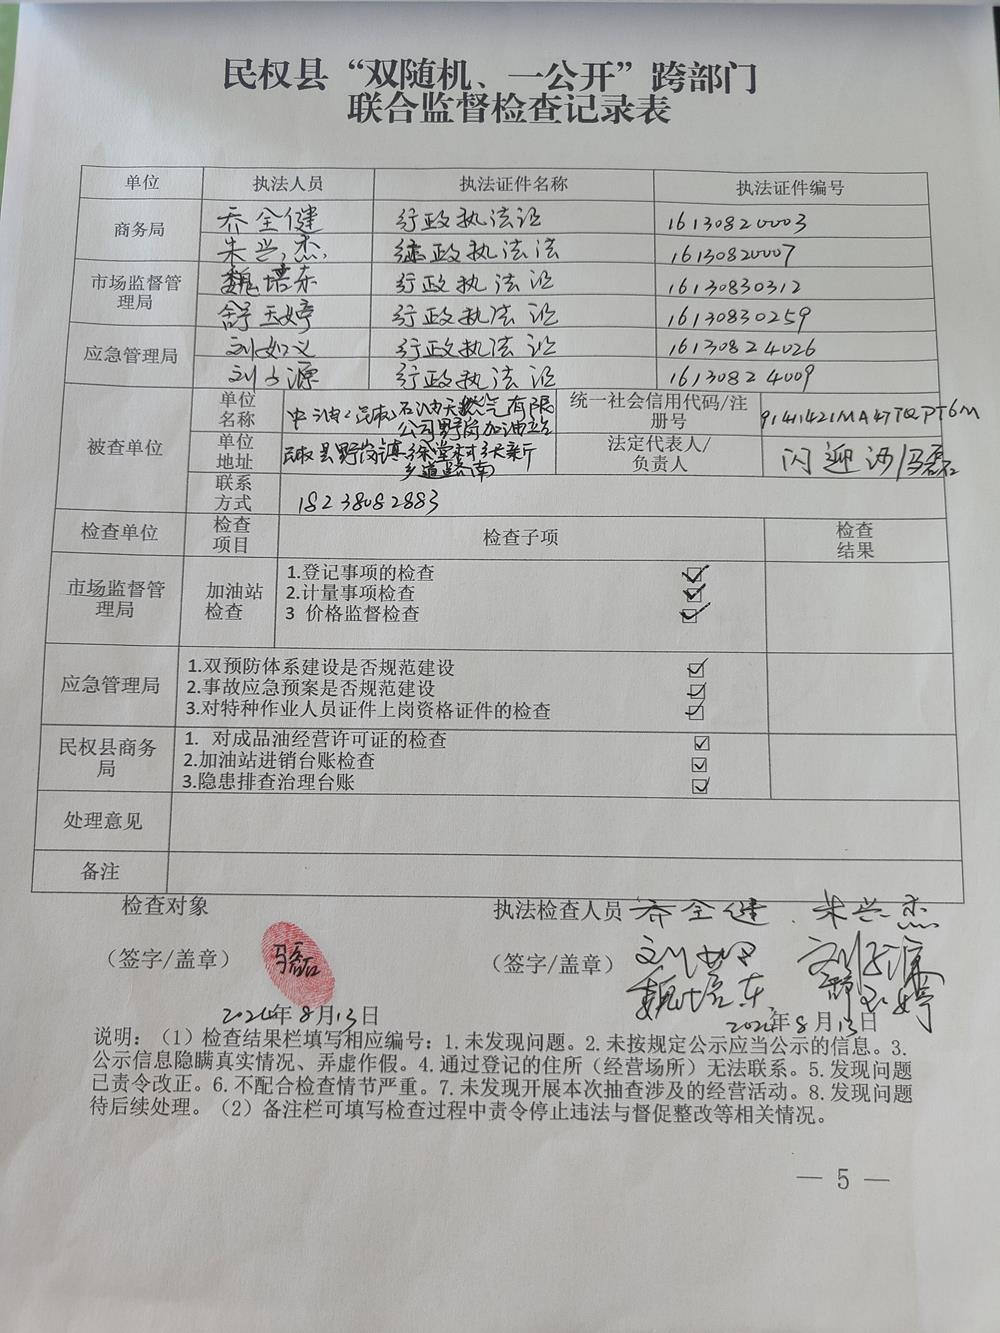 民权县“双随机、一公开”跨部门
联合监督检查记录表
单位 执法人员 执法证件名称 执法证件编号
商务局 乔全健 行政执法证 16130820003
朱兴杰 行政执法法 16130820007
市场监督管理局 魏培东 行政执法证 16130830312
舒玉婷 行政执法证 16130830259
应急管理局 刘如义 行政执法证 16130824026
刘子源 行政执法证 16130824009
被查单位 单位名称 中油(民权)石油天然气有限公司野岗加油站 统一社会信用代码/注册号 91411421MA47TQPT6M
单位地址 民权县野岗镇 乡道路南 法定代表人/负责人 闪迎 马磊
联系方式 18238082883
检查单位 检查项目 检查子项 检查结果
市场监督管理局 加油站检查 1.登记事项的检查 ☑
2.计量事项检查 ☑
3 价格监督检查 ☑
应急管理局 1.双预防体系建设是否规范建设 ☑
2.事故应急预案是否规范建设 ☑
3.对特种作业人员证件上岗资格证件的检查 ☑
民权县商务局 1. 对成品油经营许可证的检查 ☑
2.加油站进销台账检查 ☑
3.隐患排查治理台账 ☑
处理意见
备注
检查对象 执法检查人员 乔全健 朱兴杰
(签字/盖章) 马磊 (签字/盖章) 刘如义 刘子源
魏培东 舒玉婷
2024年8月13日 2024年8月13日
说明：（1）检查结果栏填写相应编号：1.未发现问题。2.未按规定公示应当公示的信息。3.
公示信息隐瞒真实情况、弄虚作假。4.通过登记的住所（经营场所）无法联系。5.发现问题
已责令改正。6.不配合检查情节严重。7.未发现开展本次抽查涉及的经营活动。8.发现问题
待后续处理。（2）备注栏可填写检查过程中责令停止违法与督促整改等相关情况。
— 5 —